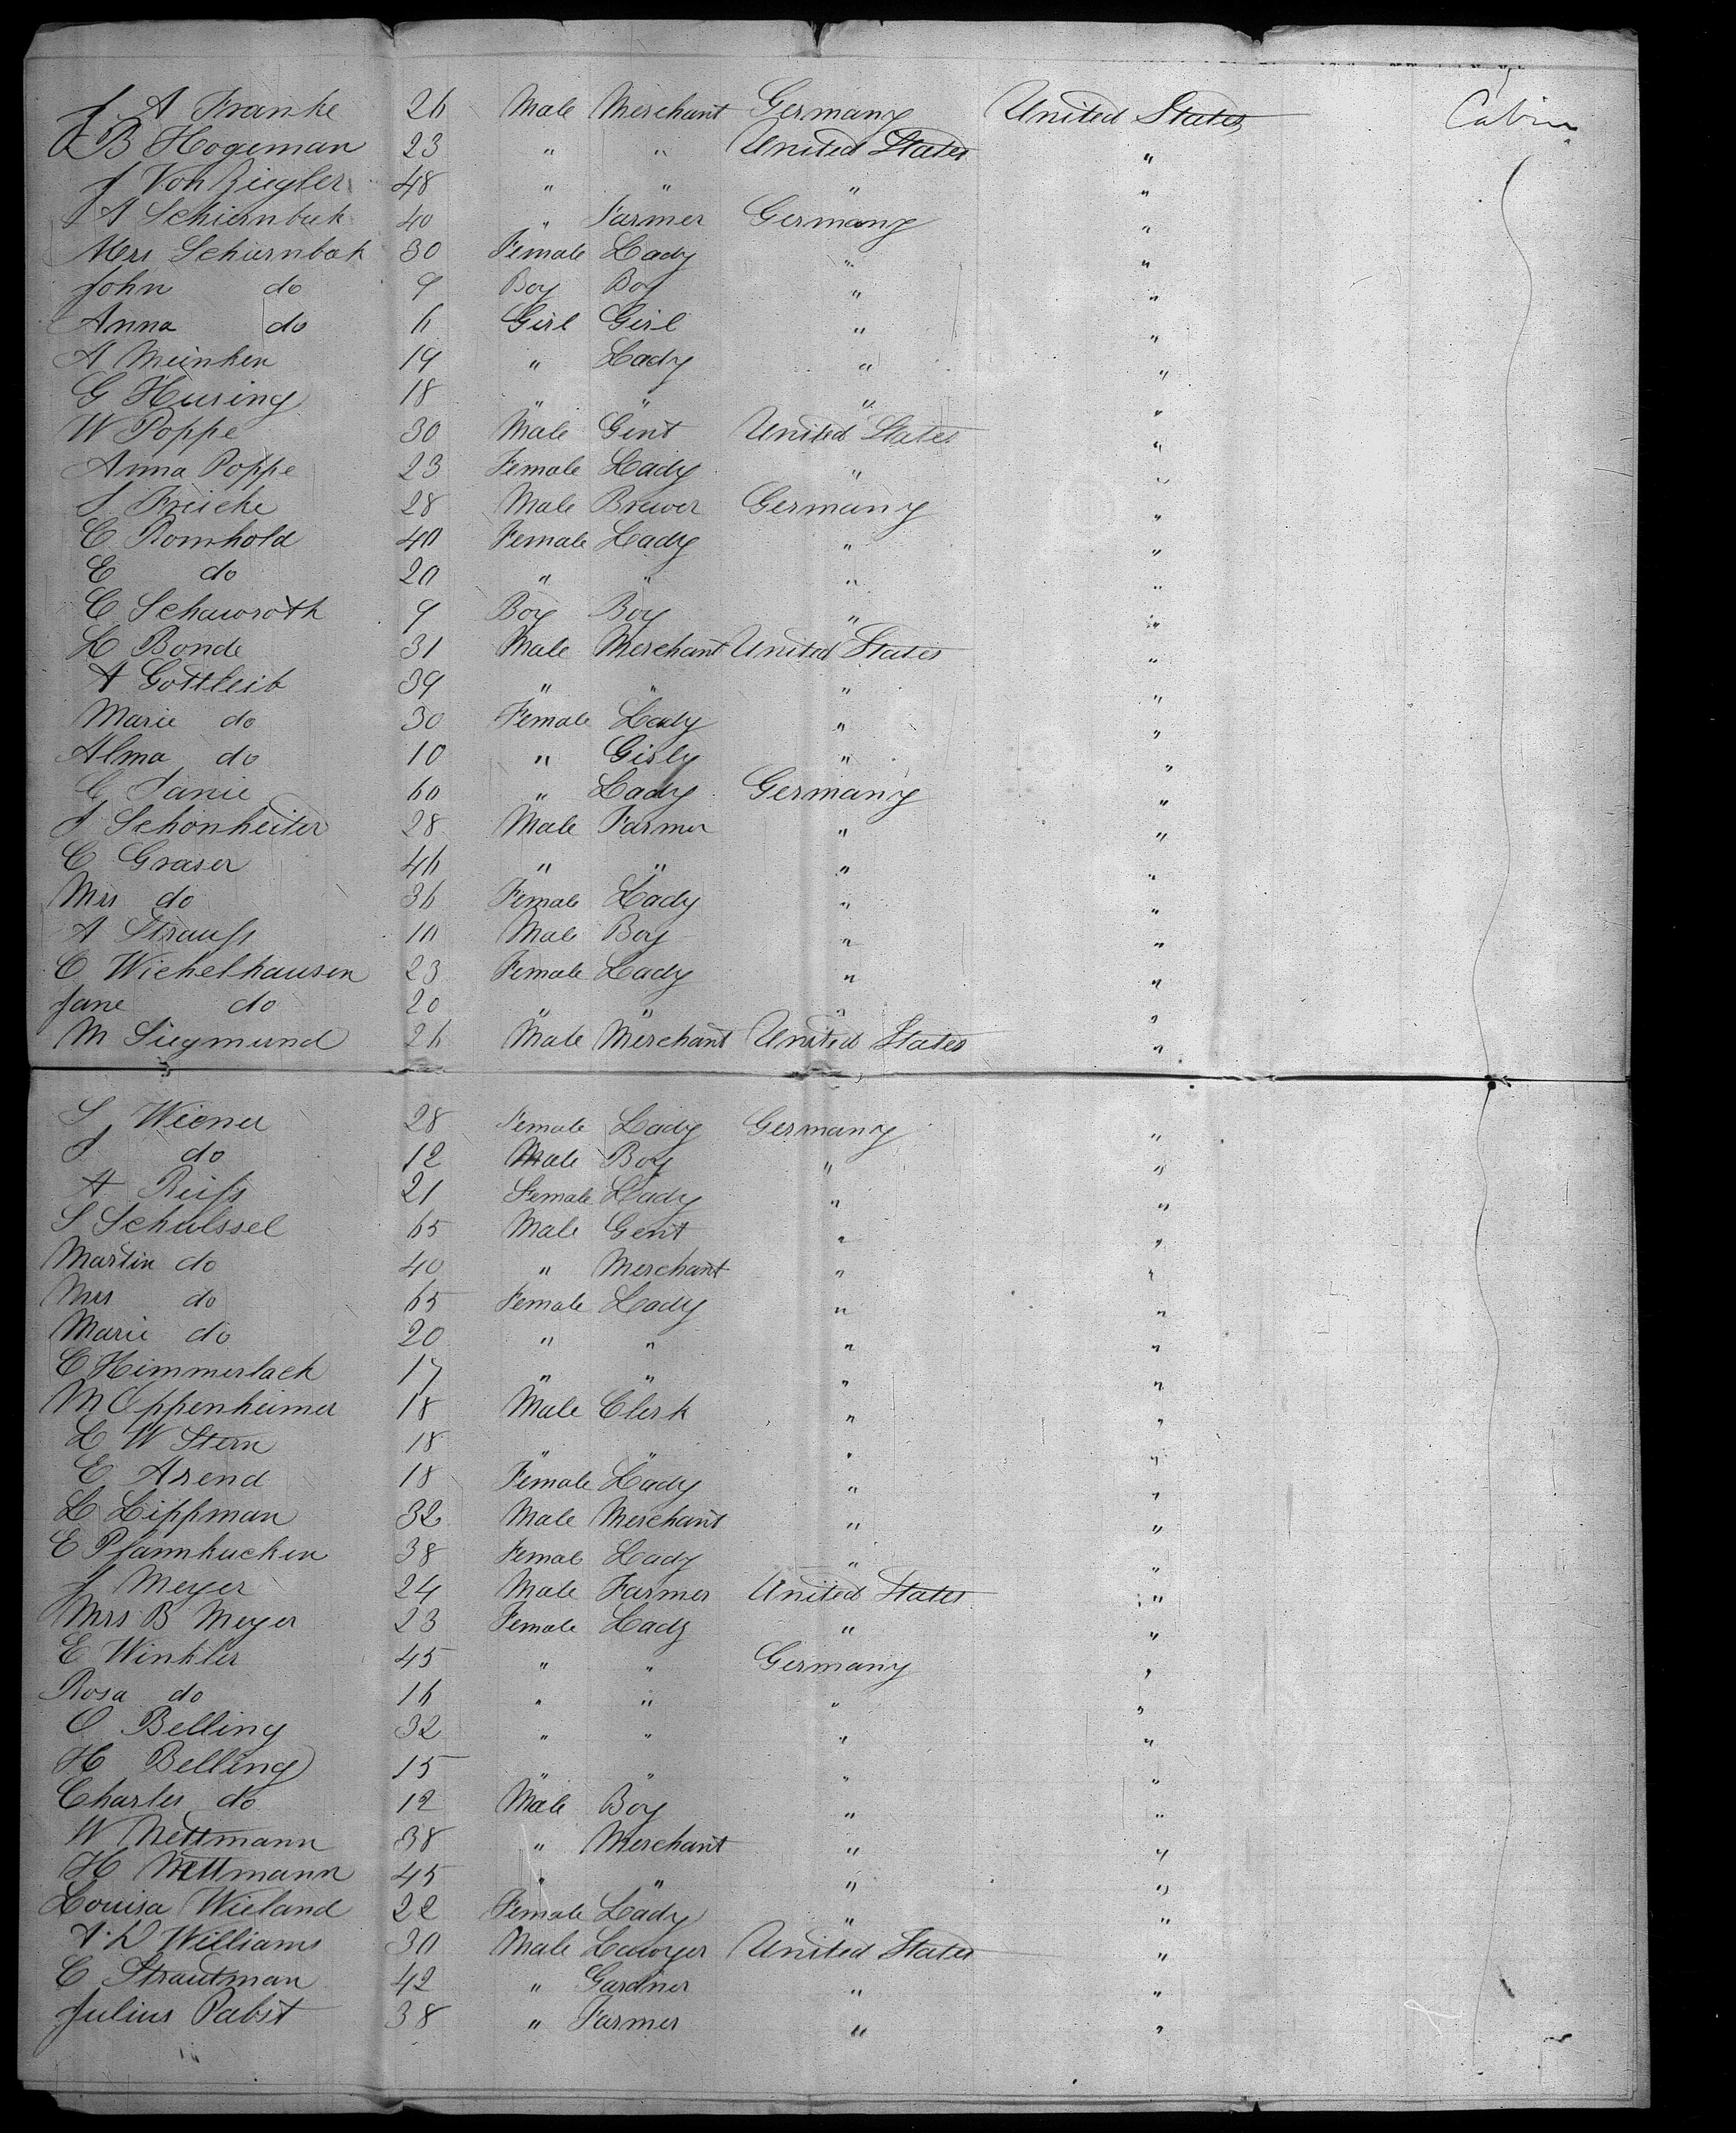 J A Franke 26 Male Merchant Germany United States Cabin
B Hogeman 23 " " United States "
J Von Ziegler 48 " " " "
J A Schiernbek 40 " Farmer Germany "
Mrs Schiernbek 30 Female Lady " "
John do 9 Boy Boy " "
Anna do 6 Girl Girl " "
A Meinken 19 " Lady " "
G Husing 18 " " " "
W Poppe 30 Male Gent United States "
Anna Poppe 23 Female Lady " "
S Fricke 28 Male Brewer Germany "
C Romhold 40 Female Lady " "
E do 20 " " " "
C Schawroth 9 Boy Boy " "
H Bonde 31 Male Merchant United States "
A Gottleib 39 " " " "
Marie do 30 Female Lady " "
Alma do 10 " Girly " "
C Janie 60 " Lady Germany "
J Schonheiter 28 Male Farmer " "
C Graser 46 " " " "
Mrs do 36 Female Lady " "
A Strauss 10 Male Boy " "
C Wichelhausen 23 Female Lady " "
Jane do 20 " " " "
M Siegmund 26 Male Merchant United States "
S Wiener 28 Female Lady Germany "
J do 12 Male Boy " "
A Reiss 21 Female Lady " "
S Schulssel 65 Male Gent " "
Martin do 40 " Merchant " "
Mrs do 65 Female Lady " "
Marie do 20 " " " "
C Himmerlach 17 " " " "
M Oppenheimer 18 Male Clerk " "
L W Stern 18 " " " "
E Arend 18 Female Lady " "
L Lippman 32 Male Merchant " "
E Pfannkucken 38 Femal Lady " "
J Meyer 24 Male Farmer United States "
Mrs B Meyer 23 Female Lady " "
E Winkler 45 " " Germany "
Rosa do 16 " " " "
O Belling 32 " " " "
H Belling 15 " " " "
Charles do 12 Male Boy " "
W Nettmann 38 " Merchant " "
H Nettmann 45 " " " "
Louisa Wieland 22 Female Lady " "
A. D Williams 30 Male Lawyer United States "
C Strautman 42 " Gardner " "
Julius Pabst 38 " Farmer " "